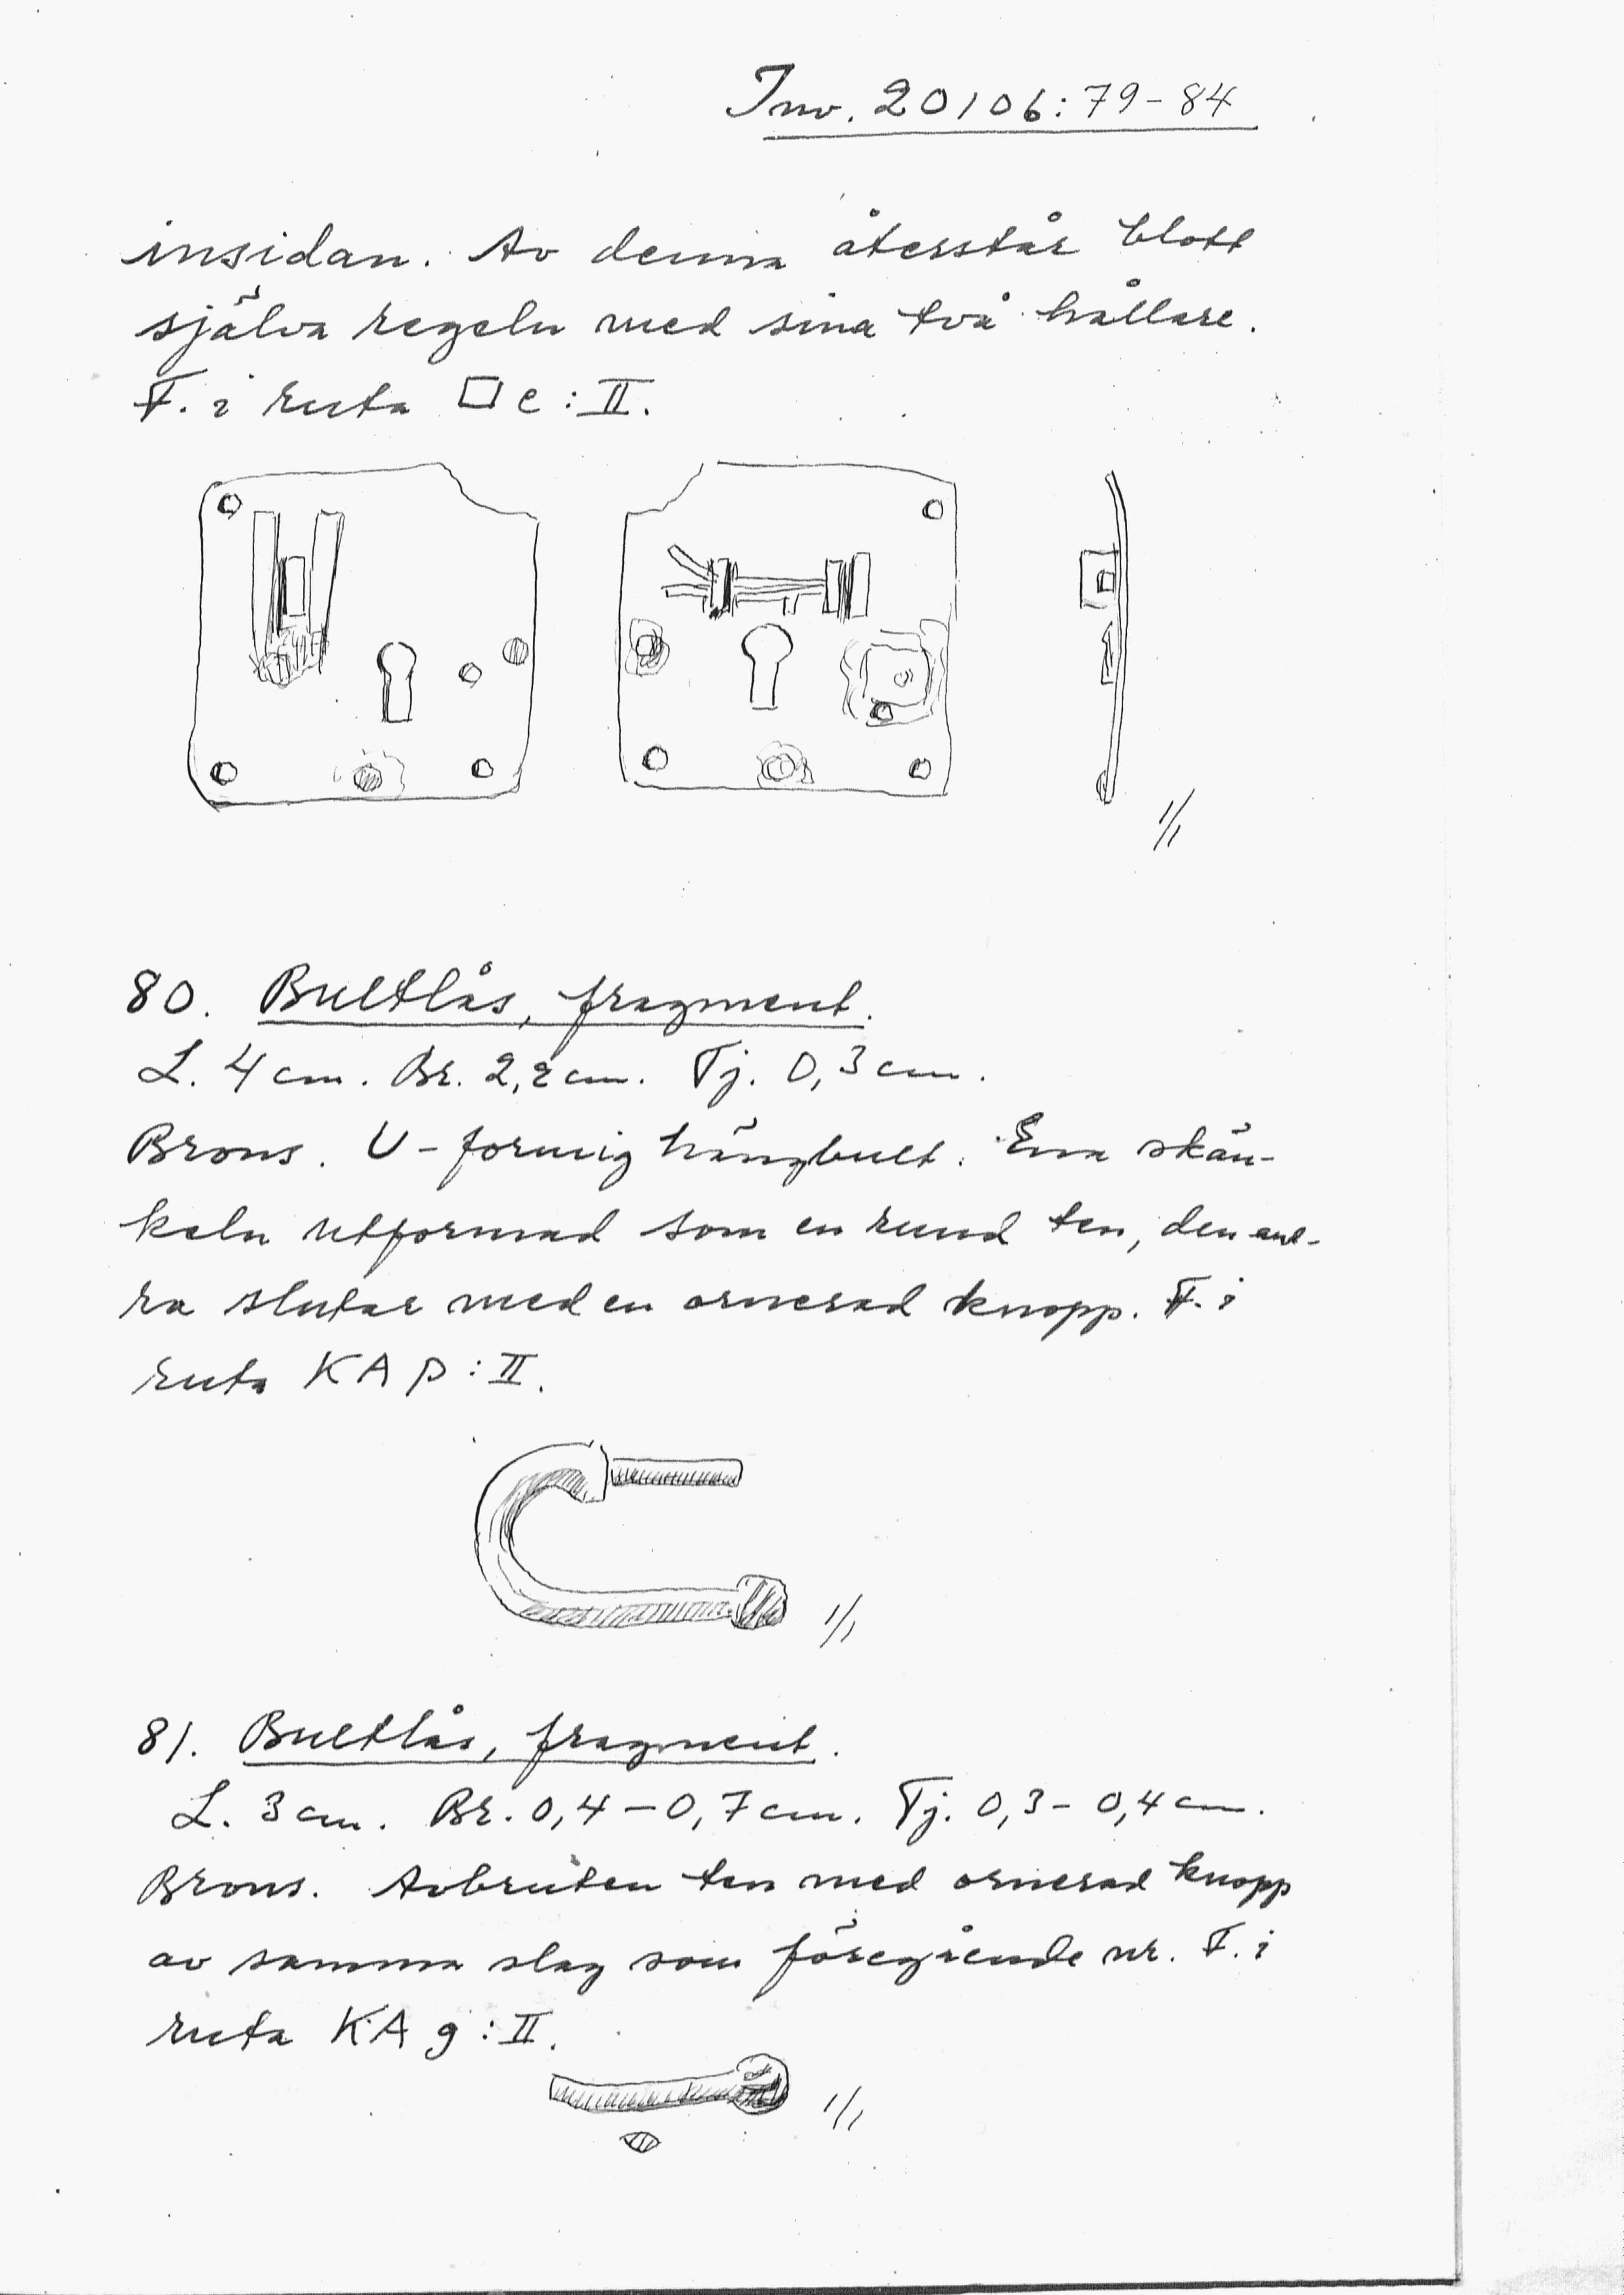 Inv. 20106:79-84
insidan. Av denna återstår blott
själva regeln med sina två hållare.
F. i ruta □ e:II.
1/1
80. Bultlås, fragment.
L. 4 cm. Br. 2,2 cm. Tj. 0,3 cm.
Brons. U-formig hängbult. Ena skän-
keln utformad som en rund ten, den and-
ra slutar med en ornerad knopp. F. i
ruta KA p:II.
1/1
81. Bultlås, fragment.
L. 3 cm. Br. 0,4-0,7 cm. Tj. 0,3-0,4 cm.
Brons. Avbruten ten med ornerad knopp
av samma slag som föregående nr. F. i
ruta KA g:II.
1/1